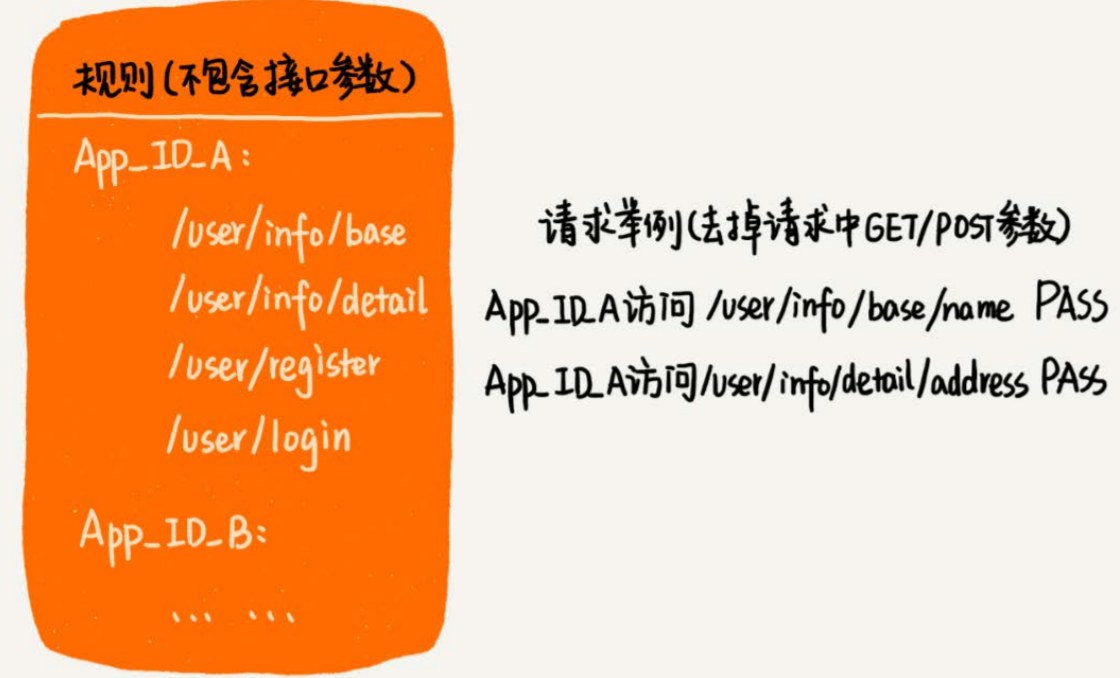 规则(不包含接口参数)
App_ID_A:
/user/info/base
/user/info/detail
/user/register
/user/login
App_ID_B:
... ...
请求举例(去掉请求中GET/POST参数)
App_ID_A访问 /user/info/base/name PASS
App_ID_A访问/user/info/detail/address PASS